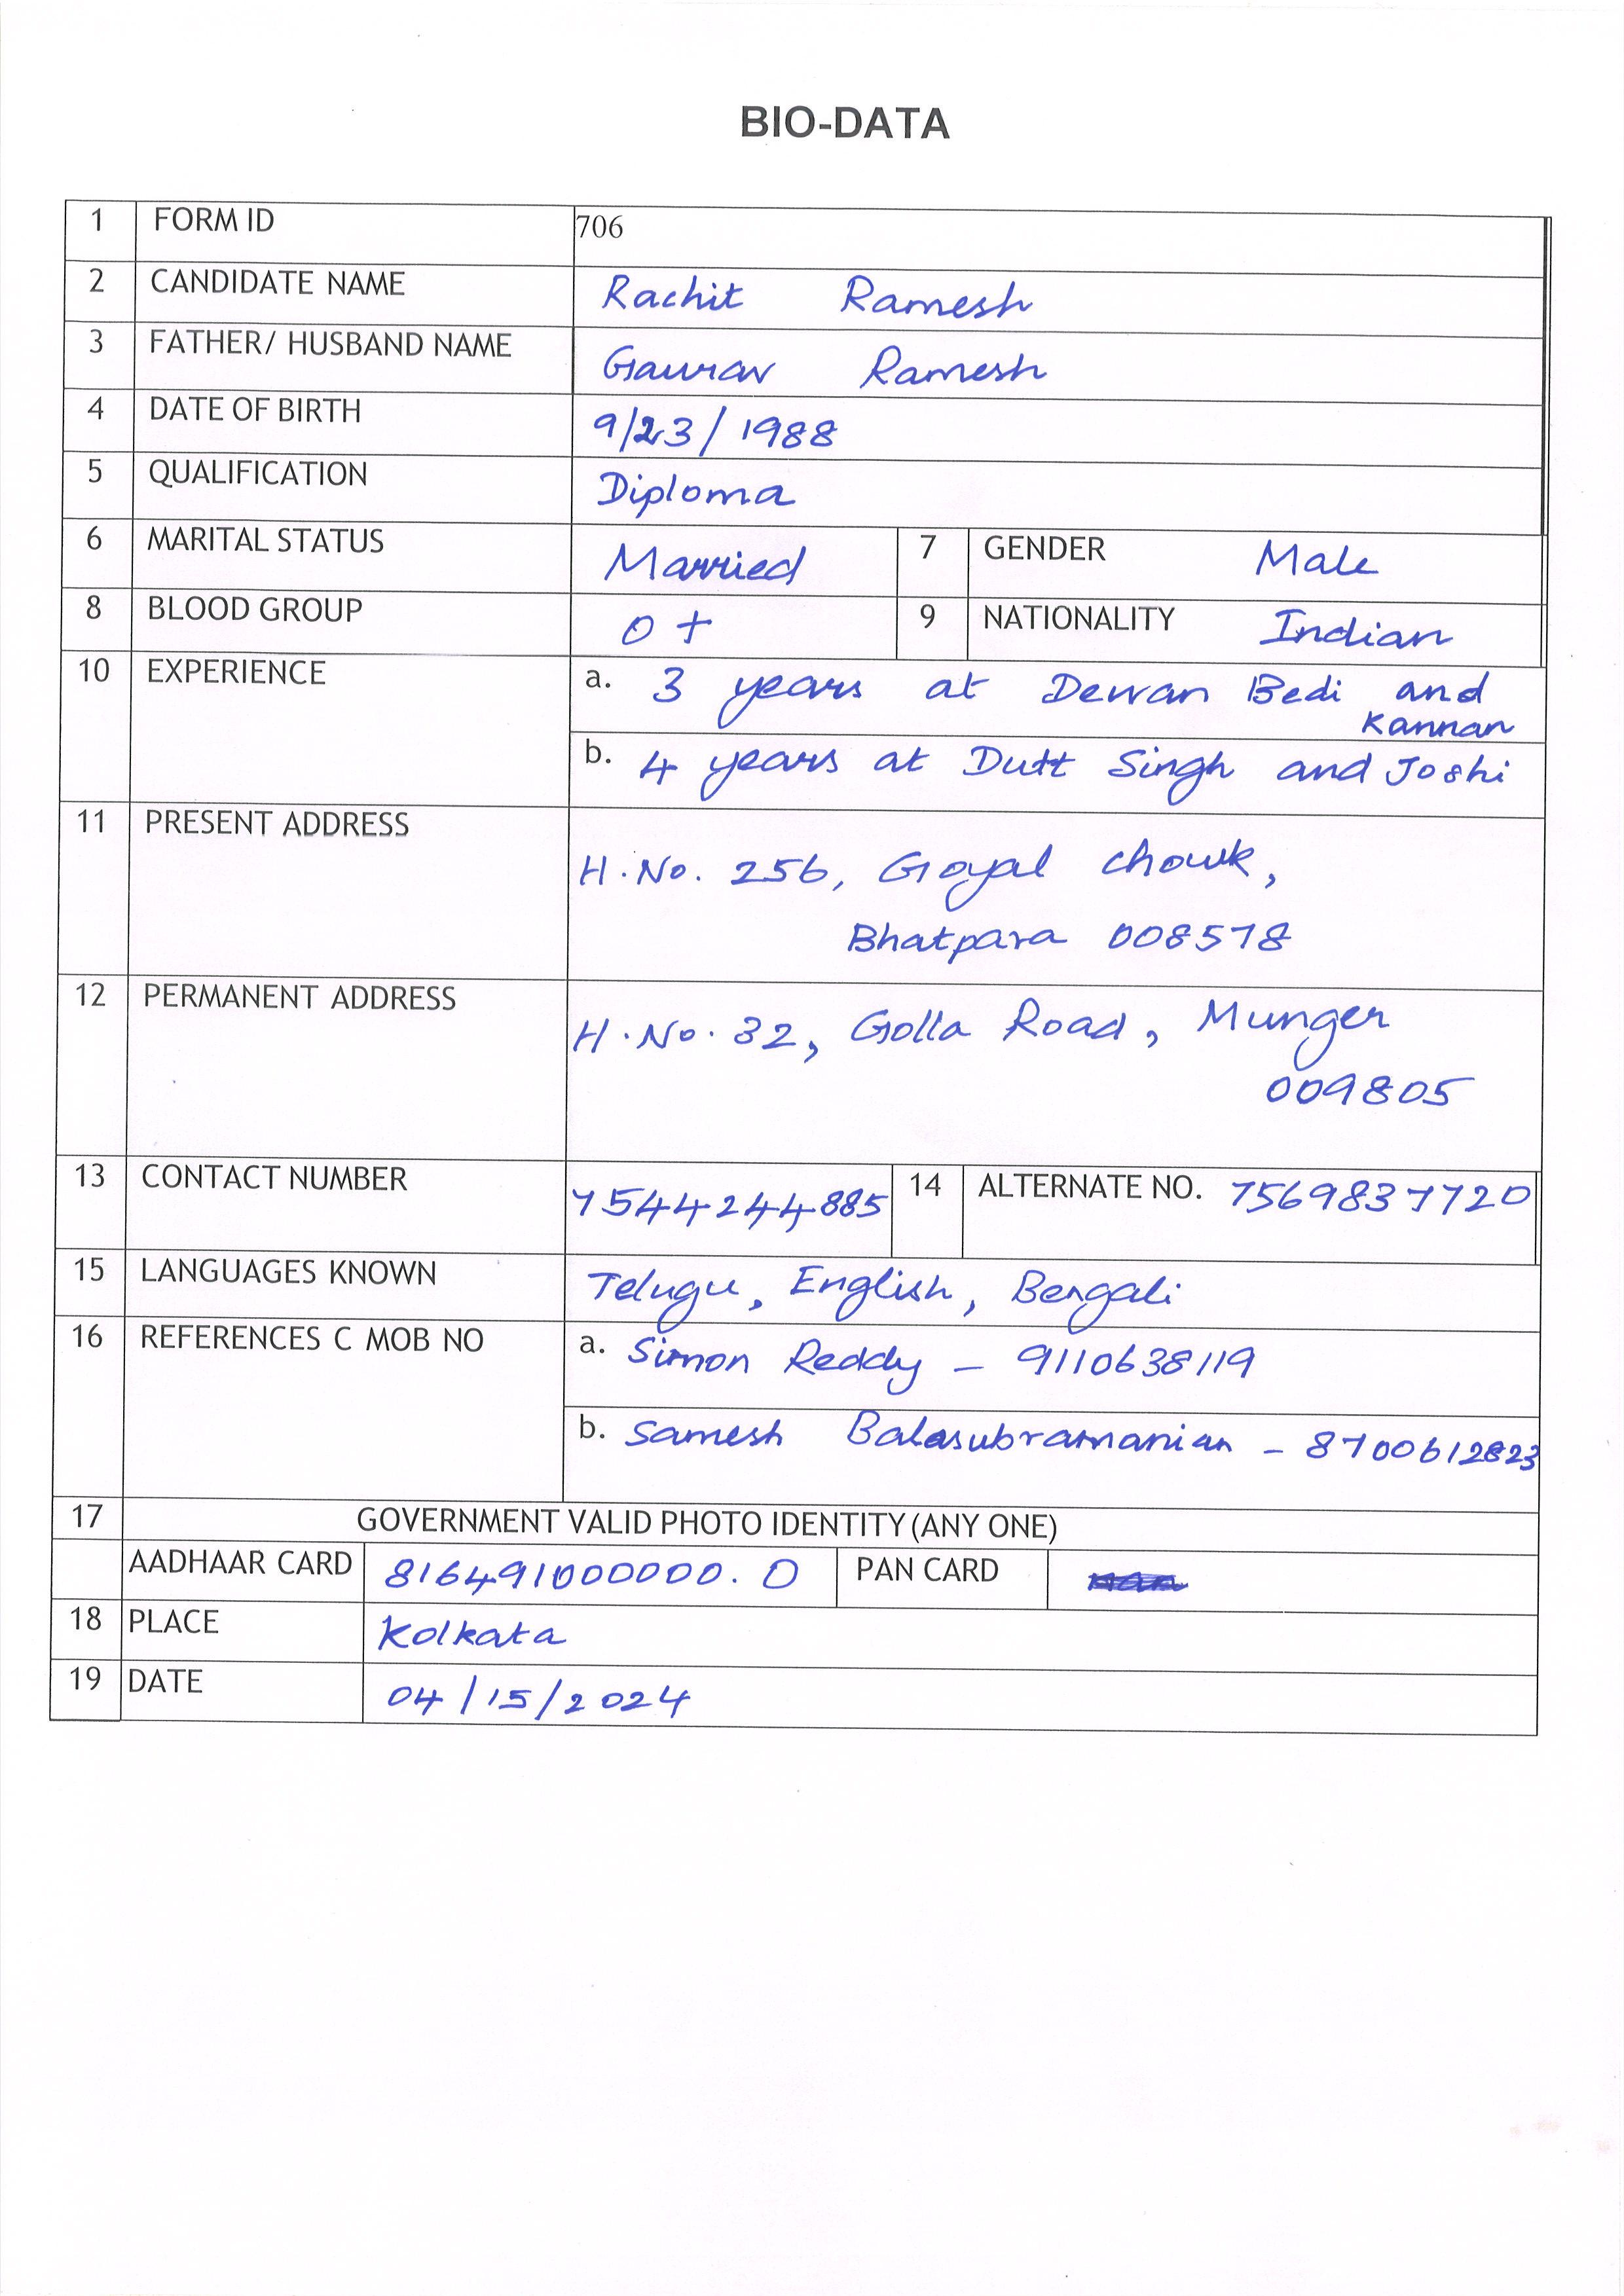 BIO-DATA
1 FORM ID 706
2 CANDIDATE NAME Rachit Ramesh
3 FATHER/ HUSBAND NAME Gaurav Ramesh
4 DATE OF BIRTH 9/23/1988
5 QUALIFICATION Diploma
6 MARITAL STATUS Married 7 GENDER Male
8 BLOOD GROUP O+ 9 NATIONALITY Indian
10 EXPERIENCE a. 3 years at Dewan Bedi and
Kannan
b. 4 years at Dutt Singh and Joshi
11 PRESENT ADDRESS
H.No. 256, Goyal chowk,
Bhatpara 008578
12 PERMANENT ADDRESS
H.No. 32, Golla Road, Munger
009805
13 CONTACT NUMBER 7544244885 14 ALTERNATE NO. 7569837720
15 LANGUAGES KNOWN Telugu, English, Bengali
16 REFERENCES C MOB NO a. Simon Reddy - 9110638119
b. Samesh Balasubramanian - 8700612823
17 GOVERNMENT VALID PHOTO IDENTITY (ANY ONE)
AADHAAR CARD 816491000000.0 PAN CARD
18 PLACE Kolkata
19 DATE 04/15/2024